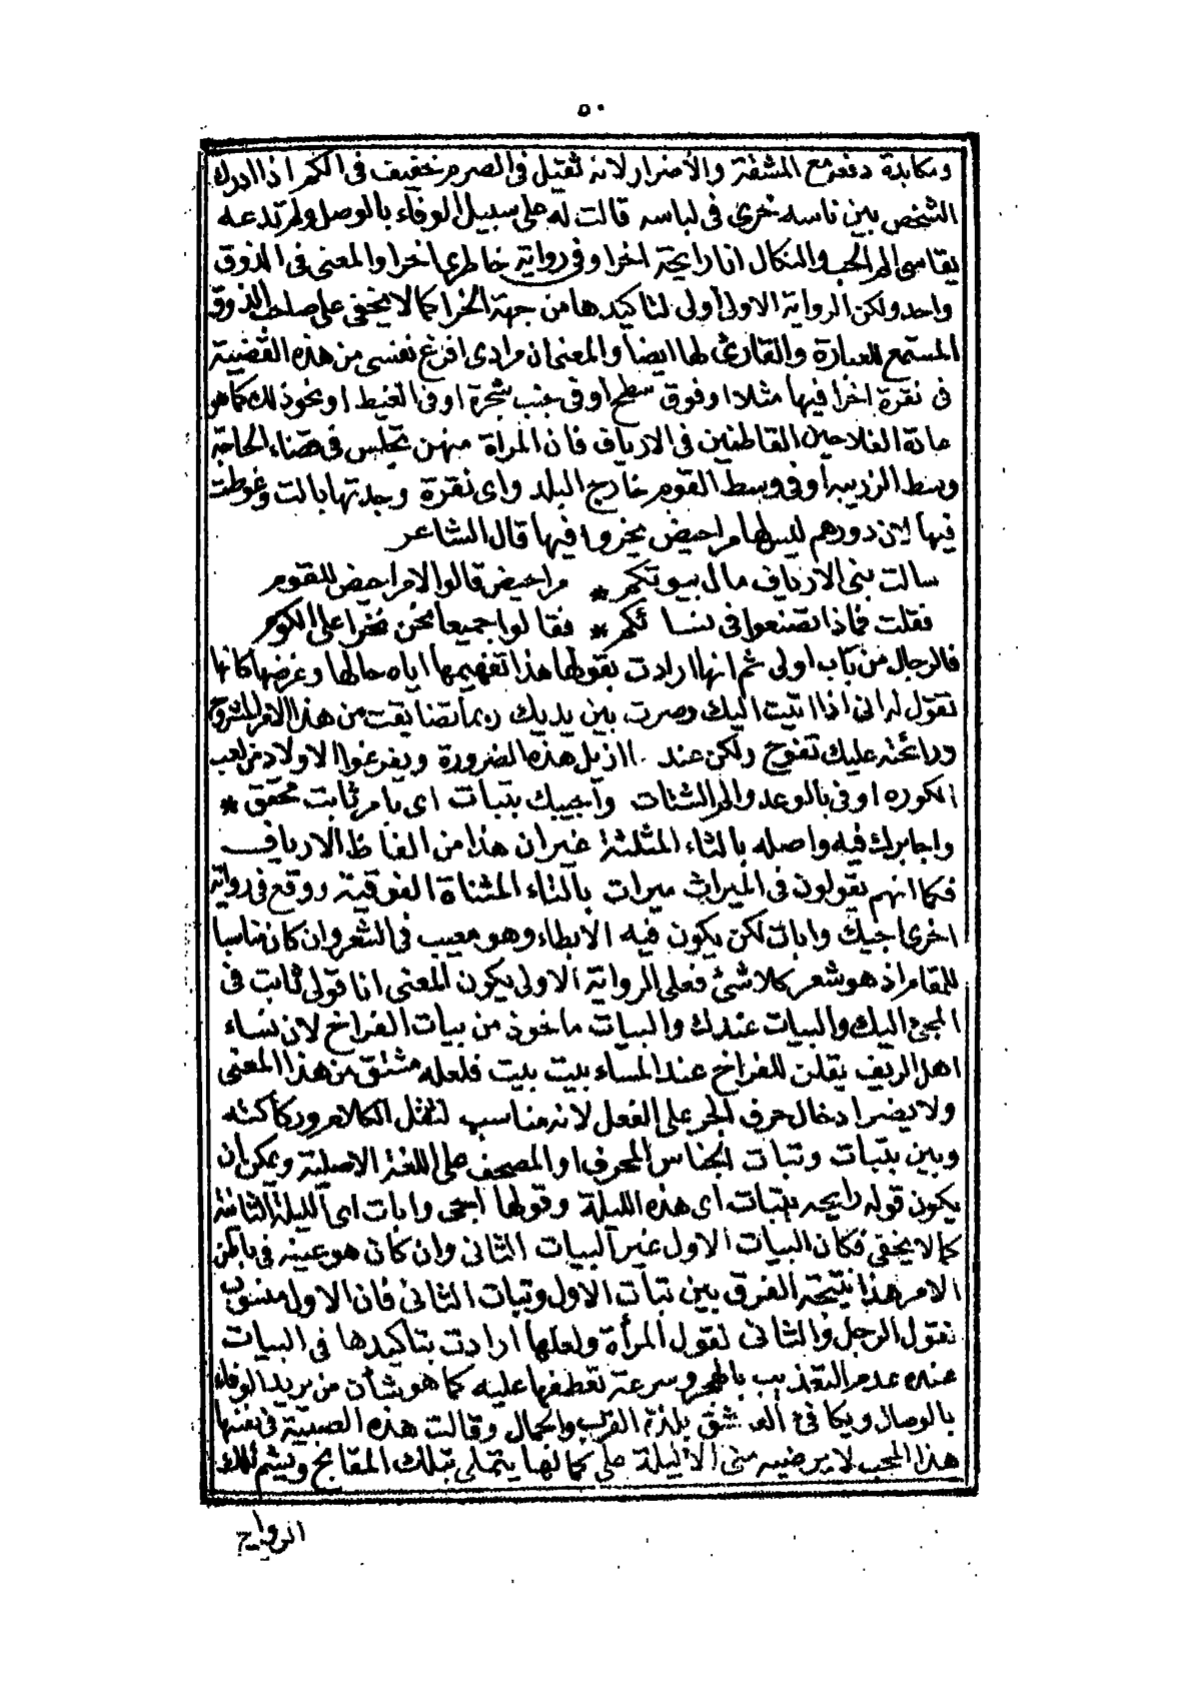 ٥٠
ومكابدة دفعه مع المشقة والأضرار لانه ثقيل في الصرم خفيف في الكم اذا ادرك
الشخص بين ناسه خرى في لباسه قالت له على سبيل الوفاء بالوصل ولم تدعه
يقاسى الم الحب والنكال انا رايحة اخرا وفي رواية خاطري اخرا والمعنى في الذوق
واحد ولكن الرواية الاولى أولى لتاكيدها من جهة الخرا كما لا يخفى على صاحب الذوق
المستمع للعبارة والقارئ لها ايضا والمعنى ان مرادى افرغ نفسي من هذه القضية
في نقرة اخرا فيها مثلا او فوق سطح او في جنب شجرة او في الغيط او نحو ذلك كما هو
عادة الفلاحين القاطنين في الارياف فان المرأة منهن تجلس في قضاء الحاجة
وسط الزريبه أو في وسط القوم خارج البلد واى نقرة وجدتها بالت وغوطت
فيها لان دورهم ليس لها مراحيض يخروا فيها قال الشاعر
سالت بنى الارياف مال بيوتكم * مراحيض قالوا لا مراحض للقوم
فقلت فماذا تصنعوا في نسائكم * فقالوا جميعا نحن نخرا على الكوم
فالرجال من باب اولى ثم انها ارادت بقولها هذا تفهيمها اياه حالها وغرضها كانها
تقول له انى اذا اتيت اليك وصرت بين يديك ربما تضايقت من هذا الامر المشروح
ورائحته عليك تفوح ولكن عند ما ازيل هذه الضرورة ويفرغوا الاولاد من لعب
الكوره اوفى بالوعد والم الشتات وآجيبك بتبات اى بأمر ثابت محقق *
واجابرك فيه واصله بالثاء المثلثة غير ان هذا من الفاظ الارياف
فكما انهم يقولون في الميراث ميرات بالتاء المثناة الفوقية ووقع في رواية
اخرى اجيك وابات لكن يكون فيه الأبطاء وهو معيب في الشعر وان كان مناسبا
للمقام اذ هو شعر كلاشئ فعلى الرواية الاولى يكون المعنى انا قولى ثابت في
المجئ اليك والبيات عندك والبيات ماخوذ من بيات الفراخ لان نساء
اهل الريف يقلن للفراخ عند المساء بيت بيت فلعله مشتق من هذا المعنى
ولا يضر ادخال حرف الجر على الفعل لانه مناسب لثقل الكلام وركاكته
وبين بتبات وتبات الجناس المحرف او المصحف على اللغة الاصلية ويمكن ان
يكون قوله رايحه بتبات اى هذه الليلة وقولها ابجى وابات اى الليلة الثانية
كما لا يخفى فكان البيات الاول غير البيات الثانى وان كان هو عينه في باطن
الامر هذا نتيجة الفرق بين تبات الأول وتبات الثانى فان الاول منسوب
لقول الرجل والثانى لقول المرأة ولعلها ارادت بتاكيدها في البيات
عنده عدم التعذيب بالهجر وسرعة تعطفها عليه كما هو شأن من يريد الوفاء
بالوصال ويكافئ العشق بلذة القرب والجمال وقالت هذه الصبية في نفسها
هذا المحب لا يرضيه منى الا ليلة على كمالها يتملى بتلك المقابح ويشم تلك
الروايح